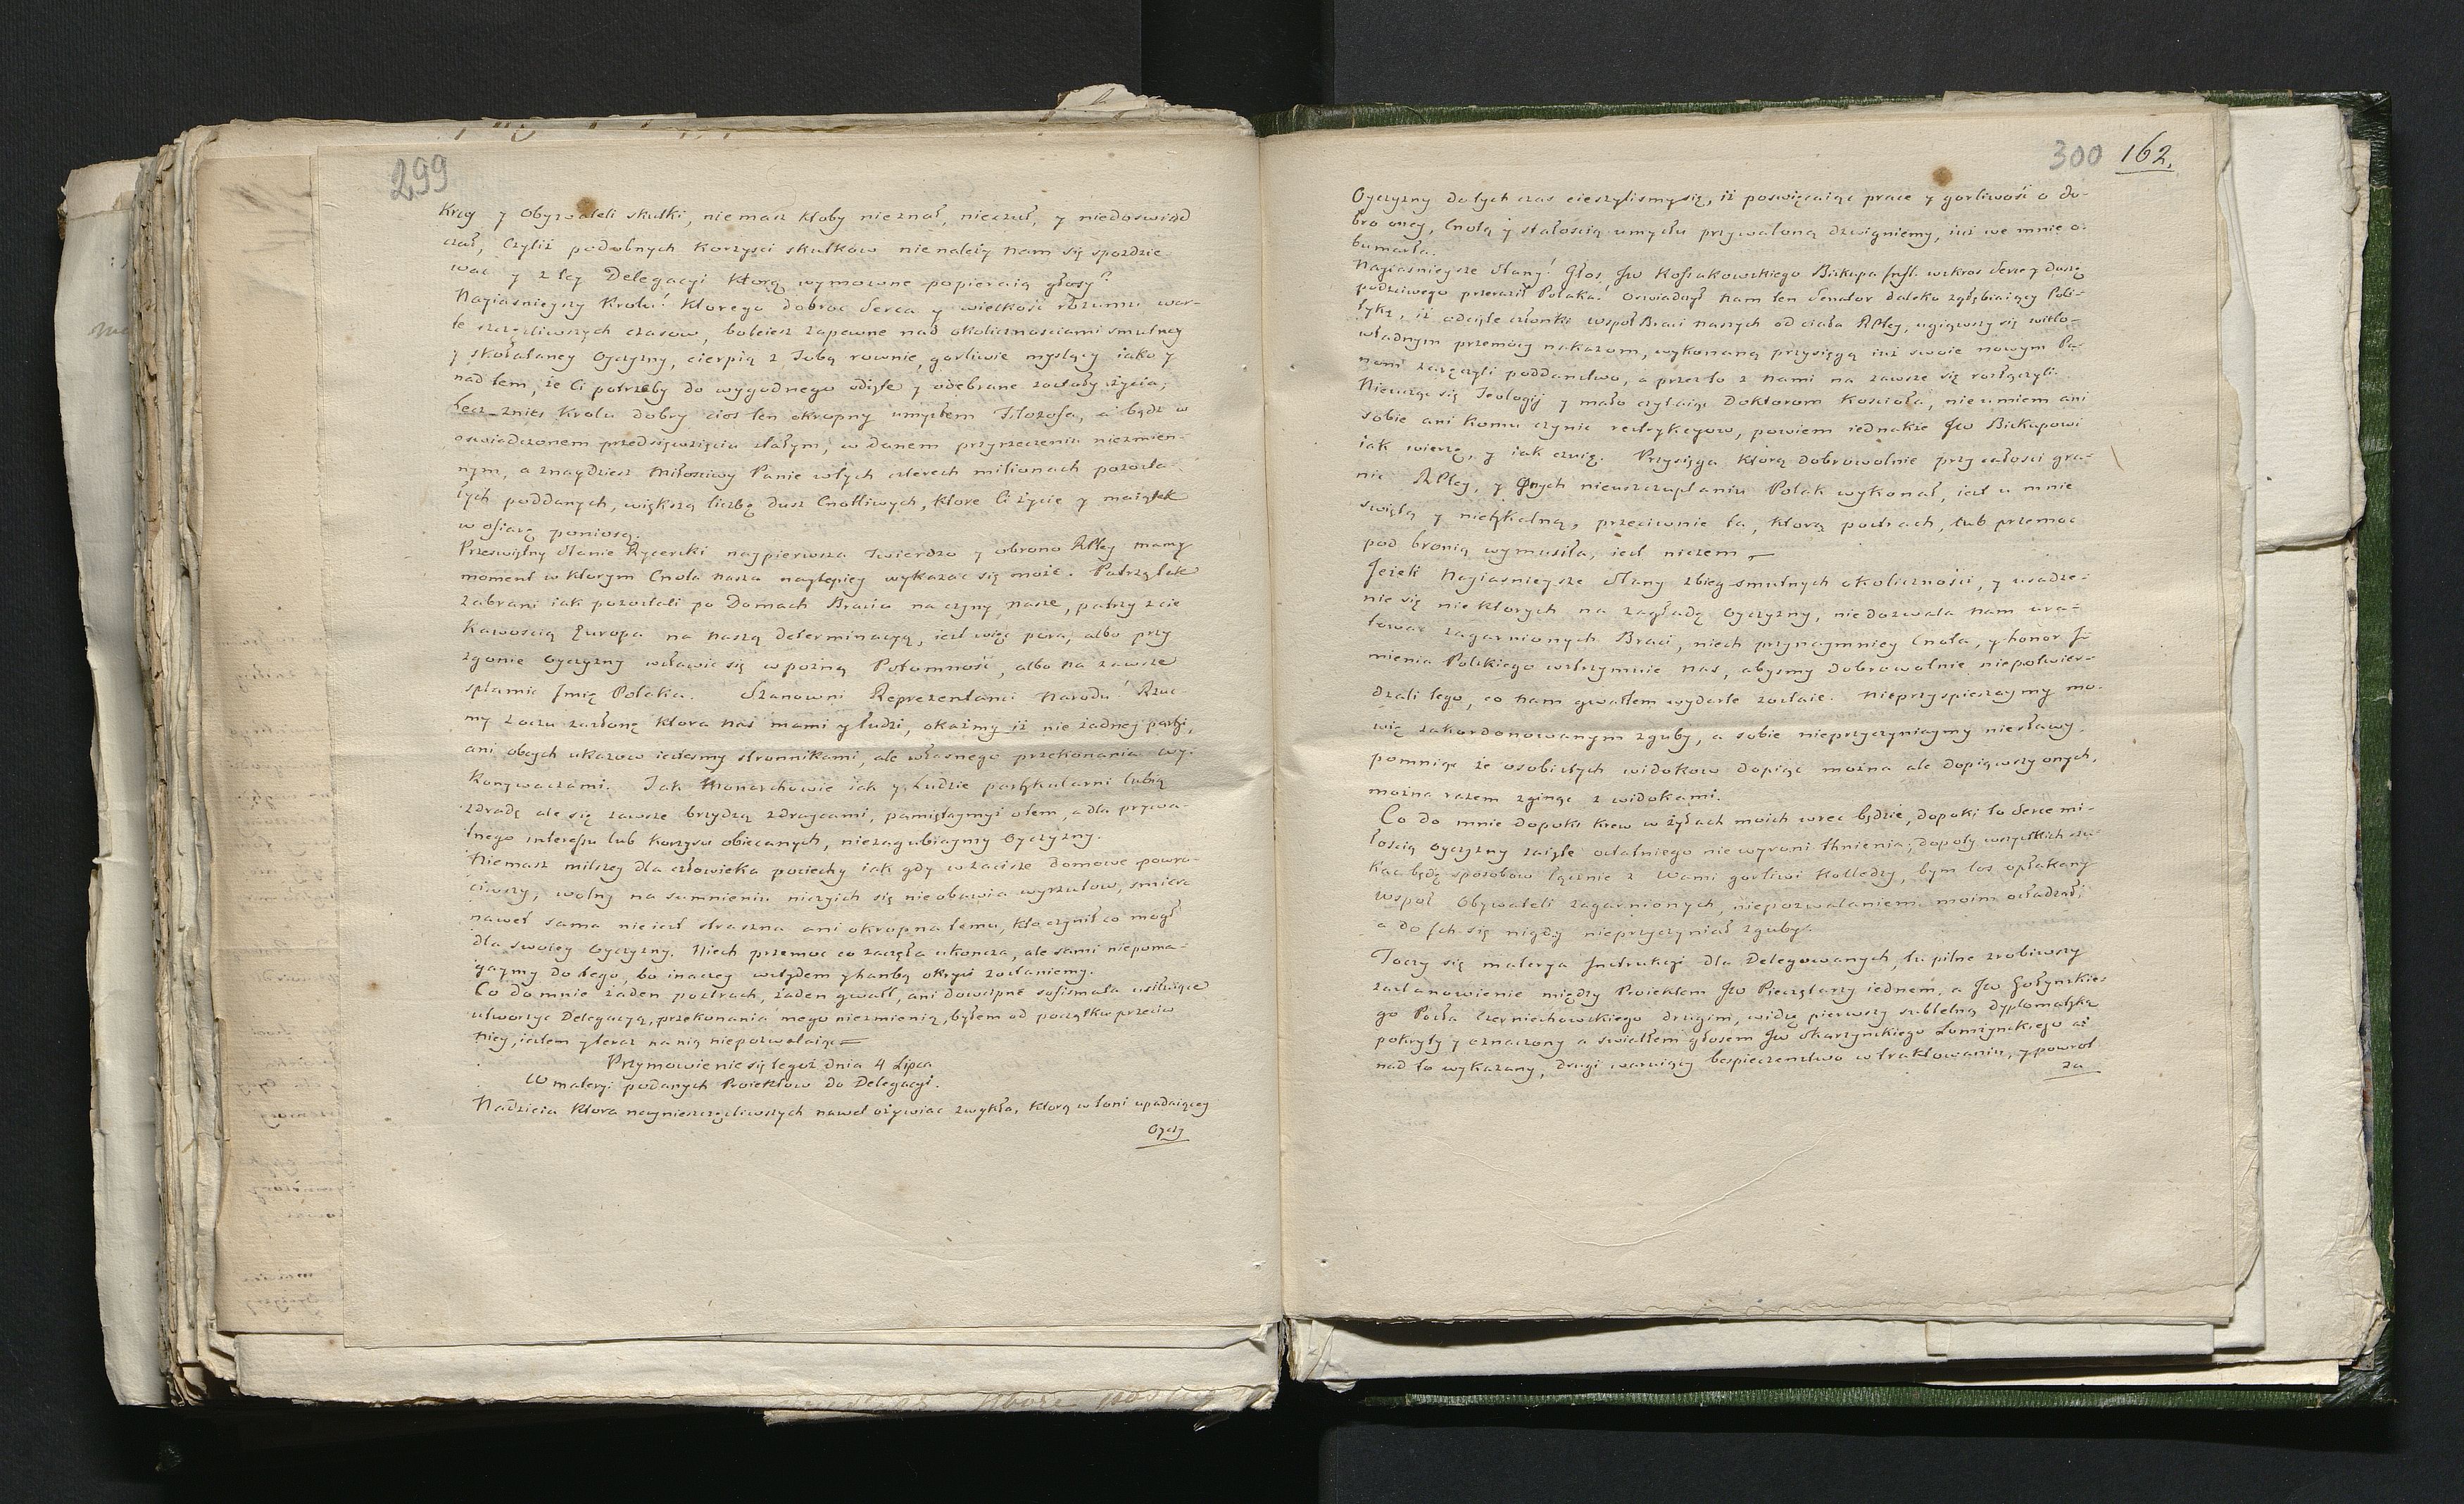 299
Kray y Obywateli skutki, niemasz ktoby nieznał, nieczuł, y niedoswiad
czał, Czyliż podobnych korzysci skutkow nienależy nam się spodzie
wać y z tey Delegacyi ktorą wymowne popieraią głosy?
Nayiasnieyszy Krolu! Ktorego dobroc serca y wielkość rozumu war-
te szczęsliwszych czasow, boleiesz zapewne nad okolicznosciami smutney
y skołataney Oyczyzny, cierpią z Tobą rownie, gorliwie myslący iako y
nad tem, że Ci potrzeby do wygodnego odięte y odebrane zostały życia,
lecz znies Krolu dobry cios ten okropny umysłem Filozofa, a bądz w
oswiadczonem przedsięwzięciu stałym, w danem przyrzeczeniu niezmien-
nym, a znaydziesz Miłosciwy Panie w tych czterech milionach pozosta-
łych poddanych, większą liczbę dusz Cnotliwych, ktore Ci życie y maiątek
w ofiarę poniosą.
Przeswiętny Stanie Rycerski naypierwsza Twierdzo y obrono RPltey mamy
moment w ktorym Cnota nasza naylepiey wykazac się może. Patrzą tak
zabrani iak pozostali po Domach Bracia na czyny nasze, patrzy z cie
kawoscią Europa na naszą determinacyą, iest więc pora, albo przy
zgonie Oyczyzny wsławic się w poźną Potomność, albo na zawsze
splamic Imię Polaka. Szanowni Reprezentanci Narodu! Rzuć-
my z oczu zasłonę ktora nas mami y łudzi, okażmy iż nie żadney partyi,
ani obcych ukazow iestesmy stronnikami, ale własnego przekonania wy-
konywaczami. Jak Monarchowie iak y Ludzie partykularni lubią
zdradę ale się zawsze brzydzą zdraycami, pamiętaymyż o tem, a dla prywa-
tnego interessu lub korzysci obiecanych, niezagubiaymy Oyczyzny.
Niemasz milszey dla człowieka pociechy iak gdy w zacisze domowe powro-
ciwszy, wolny na sumnieniu niczyich się nieobawia wyrzutow, smierc
nawet sama nieiest straszna ani okropna temu, kto czynił co mogł
dla swoiey Oyczyzny. Niech przemoc co zaczęła ukończa, ale sami niepoma-
gaymy do tego, bo inaczey wstydem y hanbą okryci zostaniemy.
Co do mnie żaden postrach, żaden gwałt, ani dowcipne sofismata usiłuiące
utworzyc Delegacyą, przekonania mego niezmienią, byłem od początku przeciw
niey, iestem y teraz na nią niepozwalaiąc
Przymowienie się tegoż dnia 4 Lipca
W materyi podanych Proiektow do Delegacyi.
Nadzieia ktora naynieszczęsliwszych nawet ożywiać zwykła, ktorą w łoni upadaiącey
Oyczy
300 162.
Oyczyzny do tych czas cieszylismy się, iż poswięcaiąc prace y gorliwość o do-
bro oney, Cnotą y stałoscią umysłu przywaloną dzwigniemy, iuż we mnie o-
bumarła.
Nayiasnieysze Stany! Głos JW Kossakowskiego Biskupa Infl. wskros serce y duszę
podsciwego przeraził Polaka. Oswiadczył nam ten Senator daleko zgłębiaiący Poli-
tykę, iż odcięte członki wspoł Braci naszych od ciała RPltey, ugiąwszy się wielo-
władnym przemocy nakazom, wykonaną przysięgą iuż swoie nowym Pa-
nom zaręczyli poddanstwo, a przez to z nami na zawsze się rozłączyli.
Nieucząc się Teologiy y mało czytaiąc Doktorow Koscioła, nieumiem ani
sobie ani komu czynic restrykcyow, powiem iednakże JW Biskupowi
iak wierzę, y iak czuię. Przysięga ktorą dobrowolnie przy całosci gra-
nic RPltey, y onych nieuszczuplaniu Polak wykonał, iest u mnie
swiętą y nietykalną, przeciwnie ta, ktorą postrach, lub przemoc
pod bronią wymusiła, iest niczem
Jeżeli Nayiasnieysze Stany zbieg smutnych okoliczności, y usadze-
nie się niektorych na zagładę Oyczyzny, niedozwala nam ura-
towac zagarnionych Braci, niech przynaymniey Cnota, y honor I-
mienia Polskiego wstrzymuie nas, abysmy dobrowolnie niepotwier-
dzali tego, co nam gwałtem wydarte zostaie. Nieprzyspieszaymy mo-
wię zakordonowanym zguby, a sobie nieprzyczyniaymy niesławy,
pomniąc że osobistych widokow dopiąc można ale dopiąwszy onych,
można razem zginąc z widokami.
Co do mnie dopoki krew w żyłach moich wrec będzie, dopoki to serce mi-
łoscią Oyczyzny zaięte ostatniego nie wyroni tchnienia, dopoty wszystkich szu-
kac będę sposobow łącznie z Wami gorliwi Kolledzy, bym los opłakany
wspoł Obywateli zagarnionych, niepozwalaniem moim osładzał,
a do Ich się nigdy nieprzyczyniał zguby.
Toczy się materya Instrukcyi dla Delegowanych, tu pilne zrobiwszy
zastanowienie między Proiektem JW Pieczętarzy iednem, a JW Gołynskie-
go Posła Czerniechowskiego drugim, widzę pierwszy subtelną dyplomatyką
pokryty y oznaczony a swiatłem głosem JW Skarzynskiego Łomżynskiego aż
nad to wykazany, drugi waruiący bespieczenstwo w traktowaniu, y powrot
za